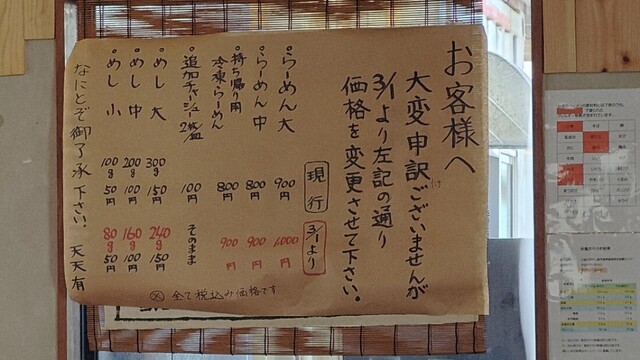 お客様へ
大変申訳ございませんが
3/1より左記の通り
価格を変更させて下さい。
現行
3/1より
らーめん大 900円 1000円
らーめん中 800円 900円
持ち帰り用
冷凍らーめん 800円 900円
追加チャーシュー2枚皿 100円 そのまま
めし大 300g 150円 240g 150円
めし中 200g 100円 160g 100円
めし小 100g 50円 80g 50円
なにとぞ御了承下さい。 天天有
※全て税込み価格です